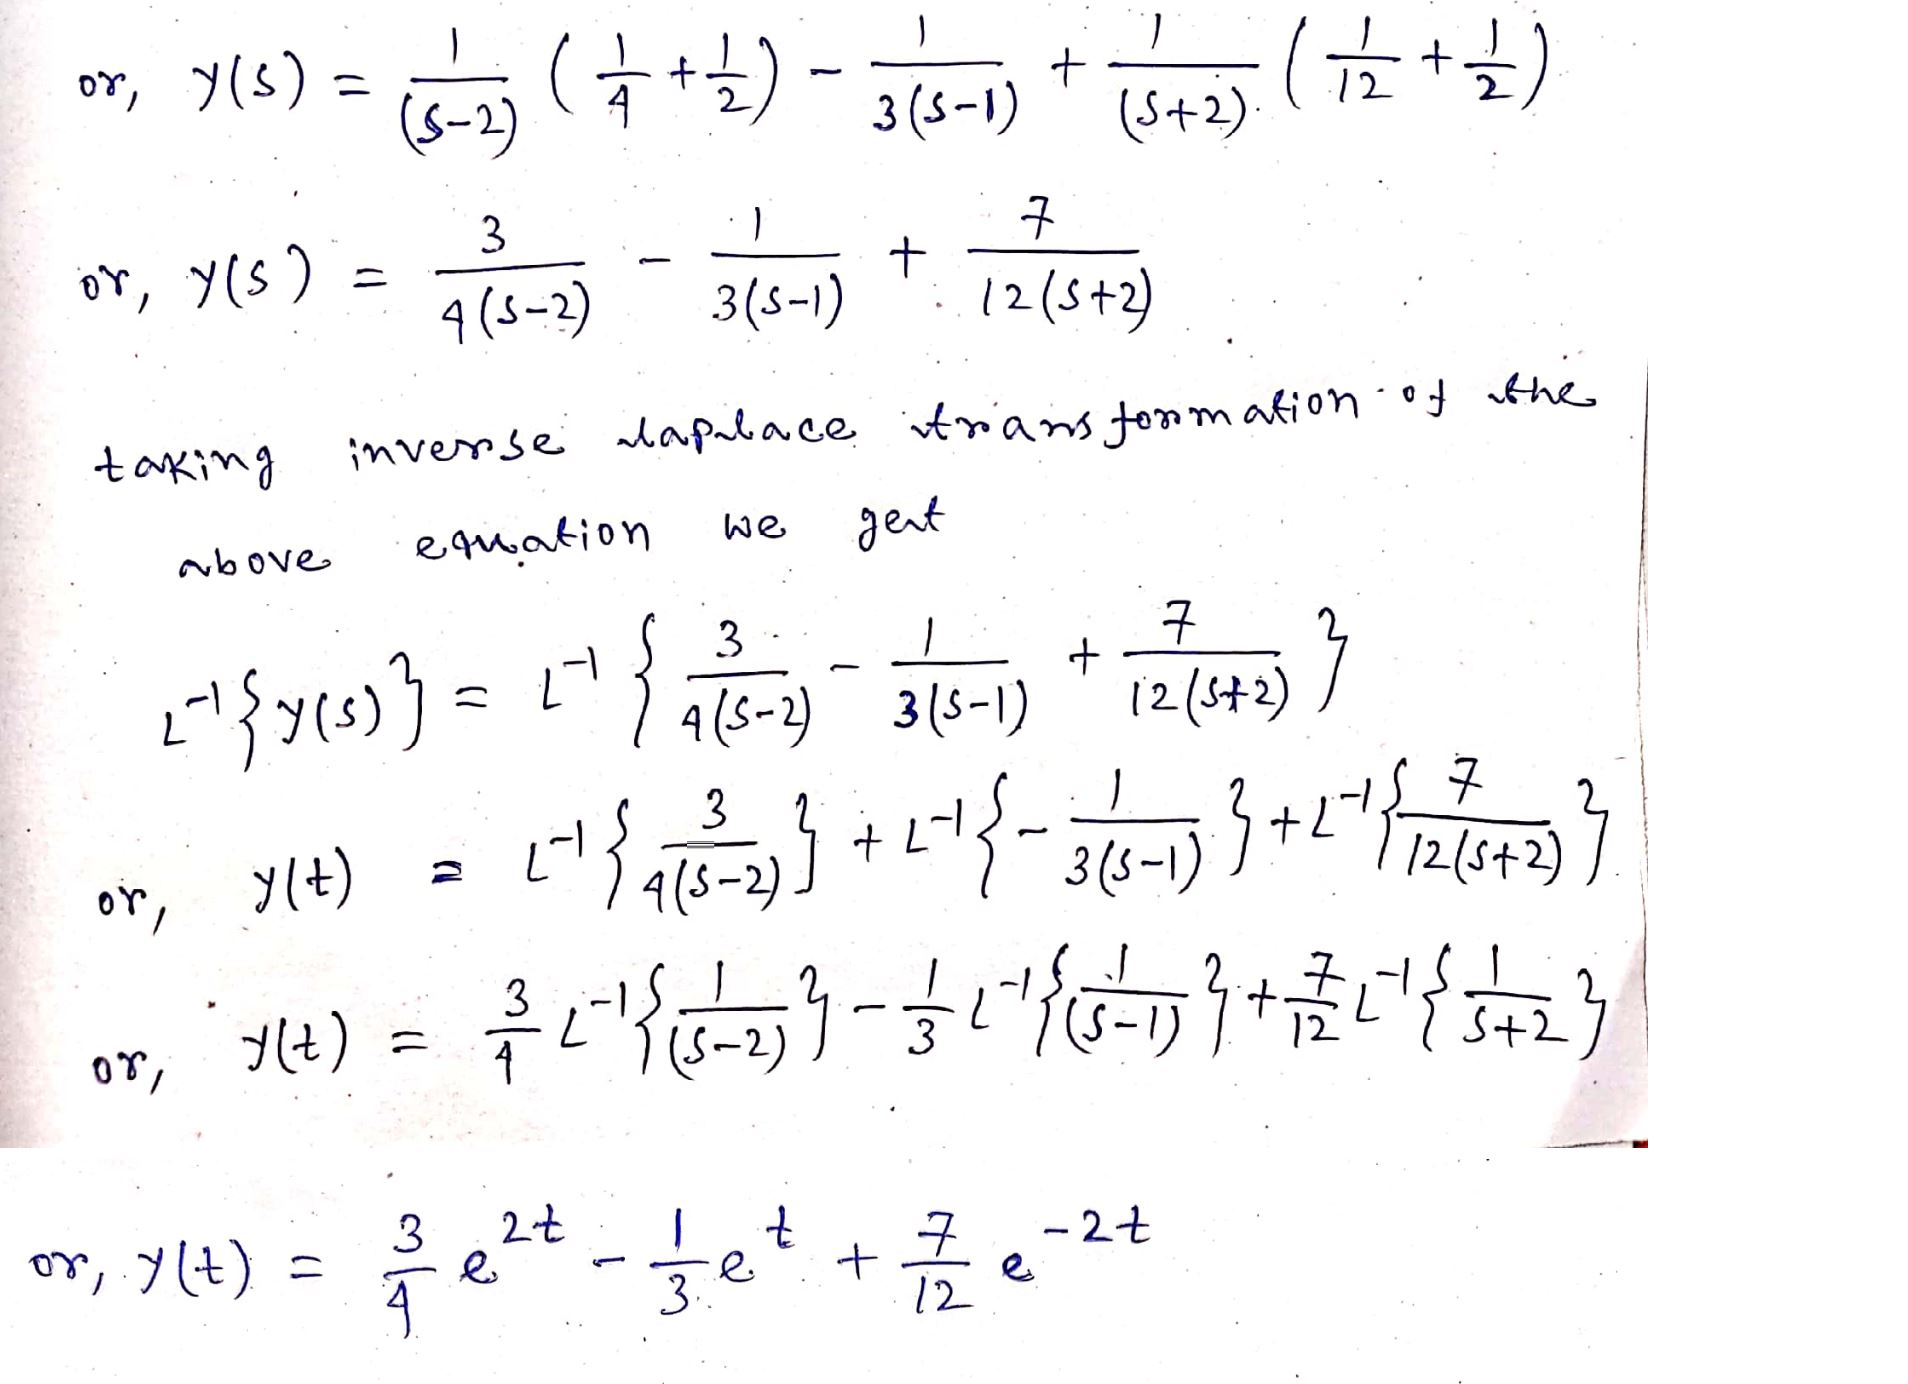 or, y(s) = 1/(s-2) (1/4 + 1/2) - 1/3(s-1) + 1/(s+2) (1/12 + 1/2)
or, y(s) = 3/4(s-2) - 1/3(s-1) + 7/12(s+2)
taking inverse laplace transformation of the
above equation we get
L⁻¹{y(s)} = L⁻¹{3/4(s-2) - 1/3(s-1) + 7/12(s+2)}
or, y(t) = L⁻¹{3/4(s-2)} + L⁻¹{-1/3(s-1)} + L⁻¹{7/12(s+2)}
or, y(t) = 3/4 L⁻¹{1/(s-2)} - 1/3 L⁻¹{1/(s-1)} + 7/12 L⁻¹{1/s+2}
or, y(t) = 3/4 e^2t - 1/3 e^t + 7/12 e^-2t